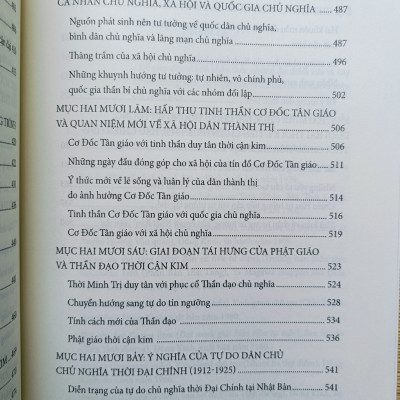 CÁ NHÂN CHỦ NGHĨA, XÃ HỘI VÀ QUỐC GIA CHỦ NGHĨA 487
Nguồn phát sinh nên tư tưởng về quốc dân chủ nghĩa,
bình dân chủ nghĩa và lãng mạn chủ nghĩa 487
Thăng trầm của xã hội chủ nghĩa 496
Những khuynh hướng tư tưởng: tự nhiên, vô chính phủ,
quốc gia thần bí chủ nghĩa với các nhóm đối lập 502
MỤC HAI MƯƠI LĂM: HẤP THỤ TINH THẦN CƠ ĐỐC TÂN GIÁO
VÀ QUAN NIỆM MỚI VỀ XÃ HỘI DÂN THÀNH THỊ 506
Cơ Đốc Tân giáo với tinh thần duy tân thời cận kim 506
Những ngày đầu đóng góp cho xã hội của tín đồ Cơ Đốc Tân giáo 511
Ý thức mới về lẽ sống và luân lý của dân thành thị
do ảnh hưởng Cơ Đốc Tân giáo 514
Tinh thần Cơ Đốc Tân giáo với quốc gia chủ nghĩa 516
Cơ Đốc Tân giáo với xã hội chủ nghĩa 519
MỤC HAI MƯƠI SÁU: GIAI ĐOẠN TÁI HƯNG CỦA PHẬT GIÁO
VÀ THẦN ĐẠO THỜI CẬN KIM 523
Thời Minh Trị duy tân với phục cổ Thần đạo chủ nghĩa 524
Chuyển hướng sang tự do tín ngưỡng 528
Tính cách mới của Thần đạo 534
Phật giáo thời cận kim 536
MỤC HAI MƯƠI BẢY: Ý NGHĨA CỦA TỰ DO DÂN CHỦ
CHỦ NGHĨA THỜI ĐẠI CHÍNH (1912-1925) 541
Diễn trạng của tự do chủ nghĩa thời Đại Chính tại Nhật Bản 541